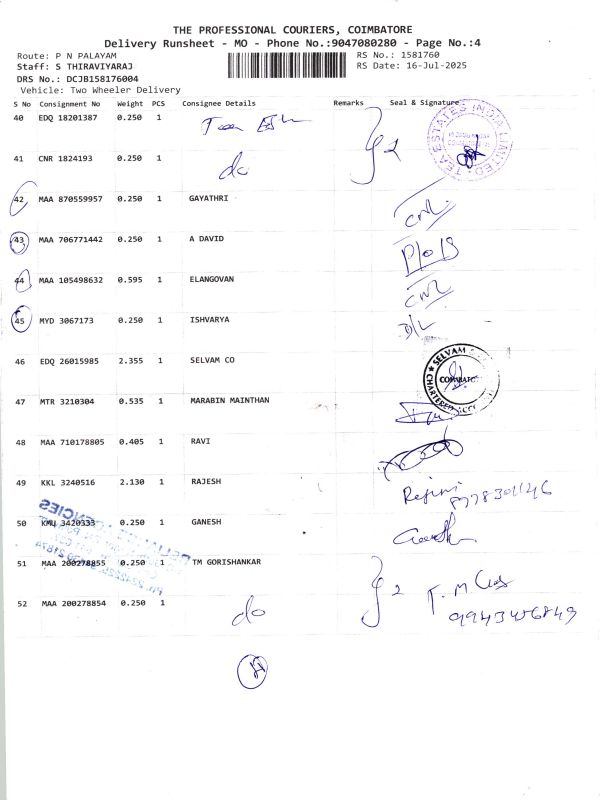 THE PROFESSIONAL COURIERS, COIMBATORE
Delivery Runsheet - MO - Phone No.:9047080280 - Page No.:4
Route: P N PALAYAM RS No.: 1581760
Staff: S THIRAVIYARAJ RS Date: 16-Jul-2025
DRS No.: DCJB158176004
Vehicle: Two Wheeler Delivery
S No Consignment No Weight PCS Consignee Details Remarks Seal & Signature
40 EDQ 18201387 0.250 1
TEA ESTATES INDIA LIMITED
41 CNR 1824193 0.250 1 do 2
42 MAA 870559957 0.250 1 GAYATHRI CNL
43 MAA 706771442 0.250 1 A DAVID
44 MAA 105498632 0.595 1 ELANGOVAN CNL
45 MYD 3067173 0.250 1 ISHVARYA D/L
46 EDQ 26015985 2.355 1 SELVAM CO SELVAM
CHARTERED
47 MTR 3210304 0.535 1 MARABIN MAINTHAN
48 MAA 710178805 0.405 1 RAVI
49 KKL 3240516 2.130 1 RAJESH
50 KMU 3420333 0.250 1 GANESH
51 MAA 200278855 0.250 1 TM GORISHANKAR 2 T. M.
52 MAA 200278854 0.250 1 do